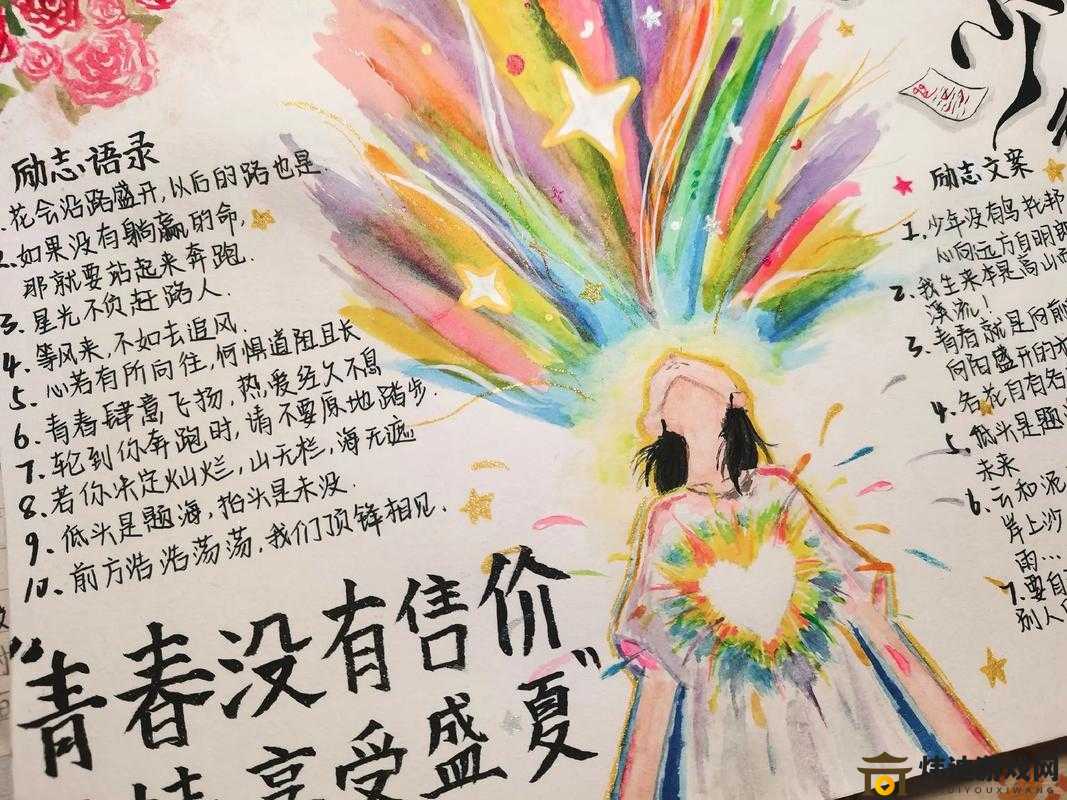 励志语录
花会沿路盛开,以后的路也是.
如果没有躺赢的命,
那就要站起来奔跑.
3. 星光不负赶路人.
4. 等风来,不如去追风.
5. 心若有所向往,何惧道阻且长
6. 青春肆意飞扬,热爱经久不息
7. 轮到你奔跑时,请不要原地踏步.
8. 若你决定灿烂,山无栏,海无遮
9. 低头是题海,抬头是未没.
10. 前方浩浩荡荡,我们顶锋相见.
"青春没有售价
享受盛夏"
少
励志文案
1. 少年没有乌托邦
心向远方自明朗
2. 我生来本是高山而
溪流!
3. 青春就是向前
向阳盛开的
4. 名花自有名
5. 低头是题
未来
6. 云和泥
岸上沙
雨...
7. 要自
别人
游戏网
YOUXIWANG